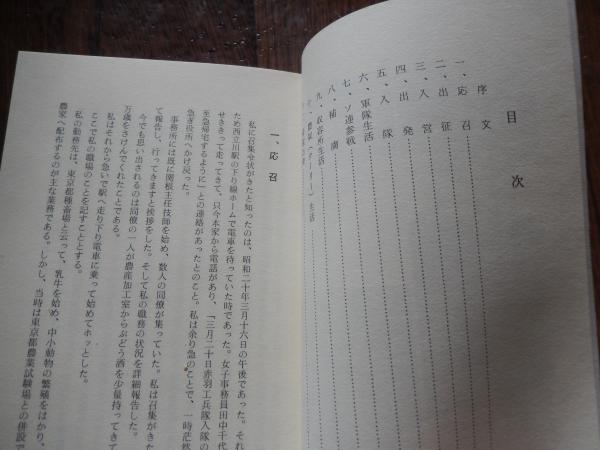 目次
序文
一、応召
二、出征
三、入営
四、出発
五、入隊
六、軍隊生活
七、ソ連参戦
八、捕虜
九、収容所生活
一、応召
私に召集令状がきたと知ったのは、昭和二十年三月十六日の午後であった。それ
ため西立川駅の下り線ホームで電車を待っていた時であった。女子事務員田中千代
せききって走ってきて、只今本家から電話があり、「三月二十日赤羽工兵隊入隊の
至急帰宅するように」との連絡があったとのこと。私は余り急のことで、一時茫然
急ぎ役所へかけ戻った。
事務所には既に関根主任技師を始め、数人の同僚が集っていた。私は召集がきた
て報告し、行ってきますと挨拶をした。そして私の職務の状況を詳細報告した。
今でも思い出されるのは同僚の一人が農産加工室からぶどう酒を少量持ってきて
万歳をさけんでくれたことである。
私はそれから急いで駅へ走り下り電車に乗って始めてホッとした。
ここで私の職場のことを記すこととする。
私の勤務先は、東京都種畜場と云って、乳牛を始め、中小動物の繁殖をはかり、
農家へ配布するのが主な業務である。しかし、当時は東京都農業試験場との併設で